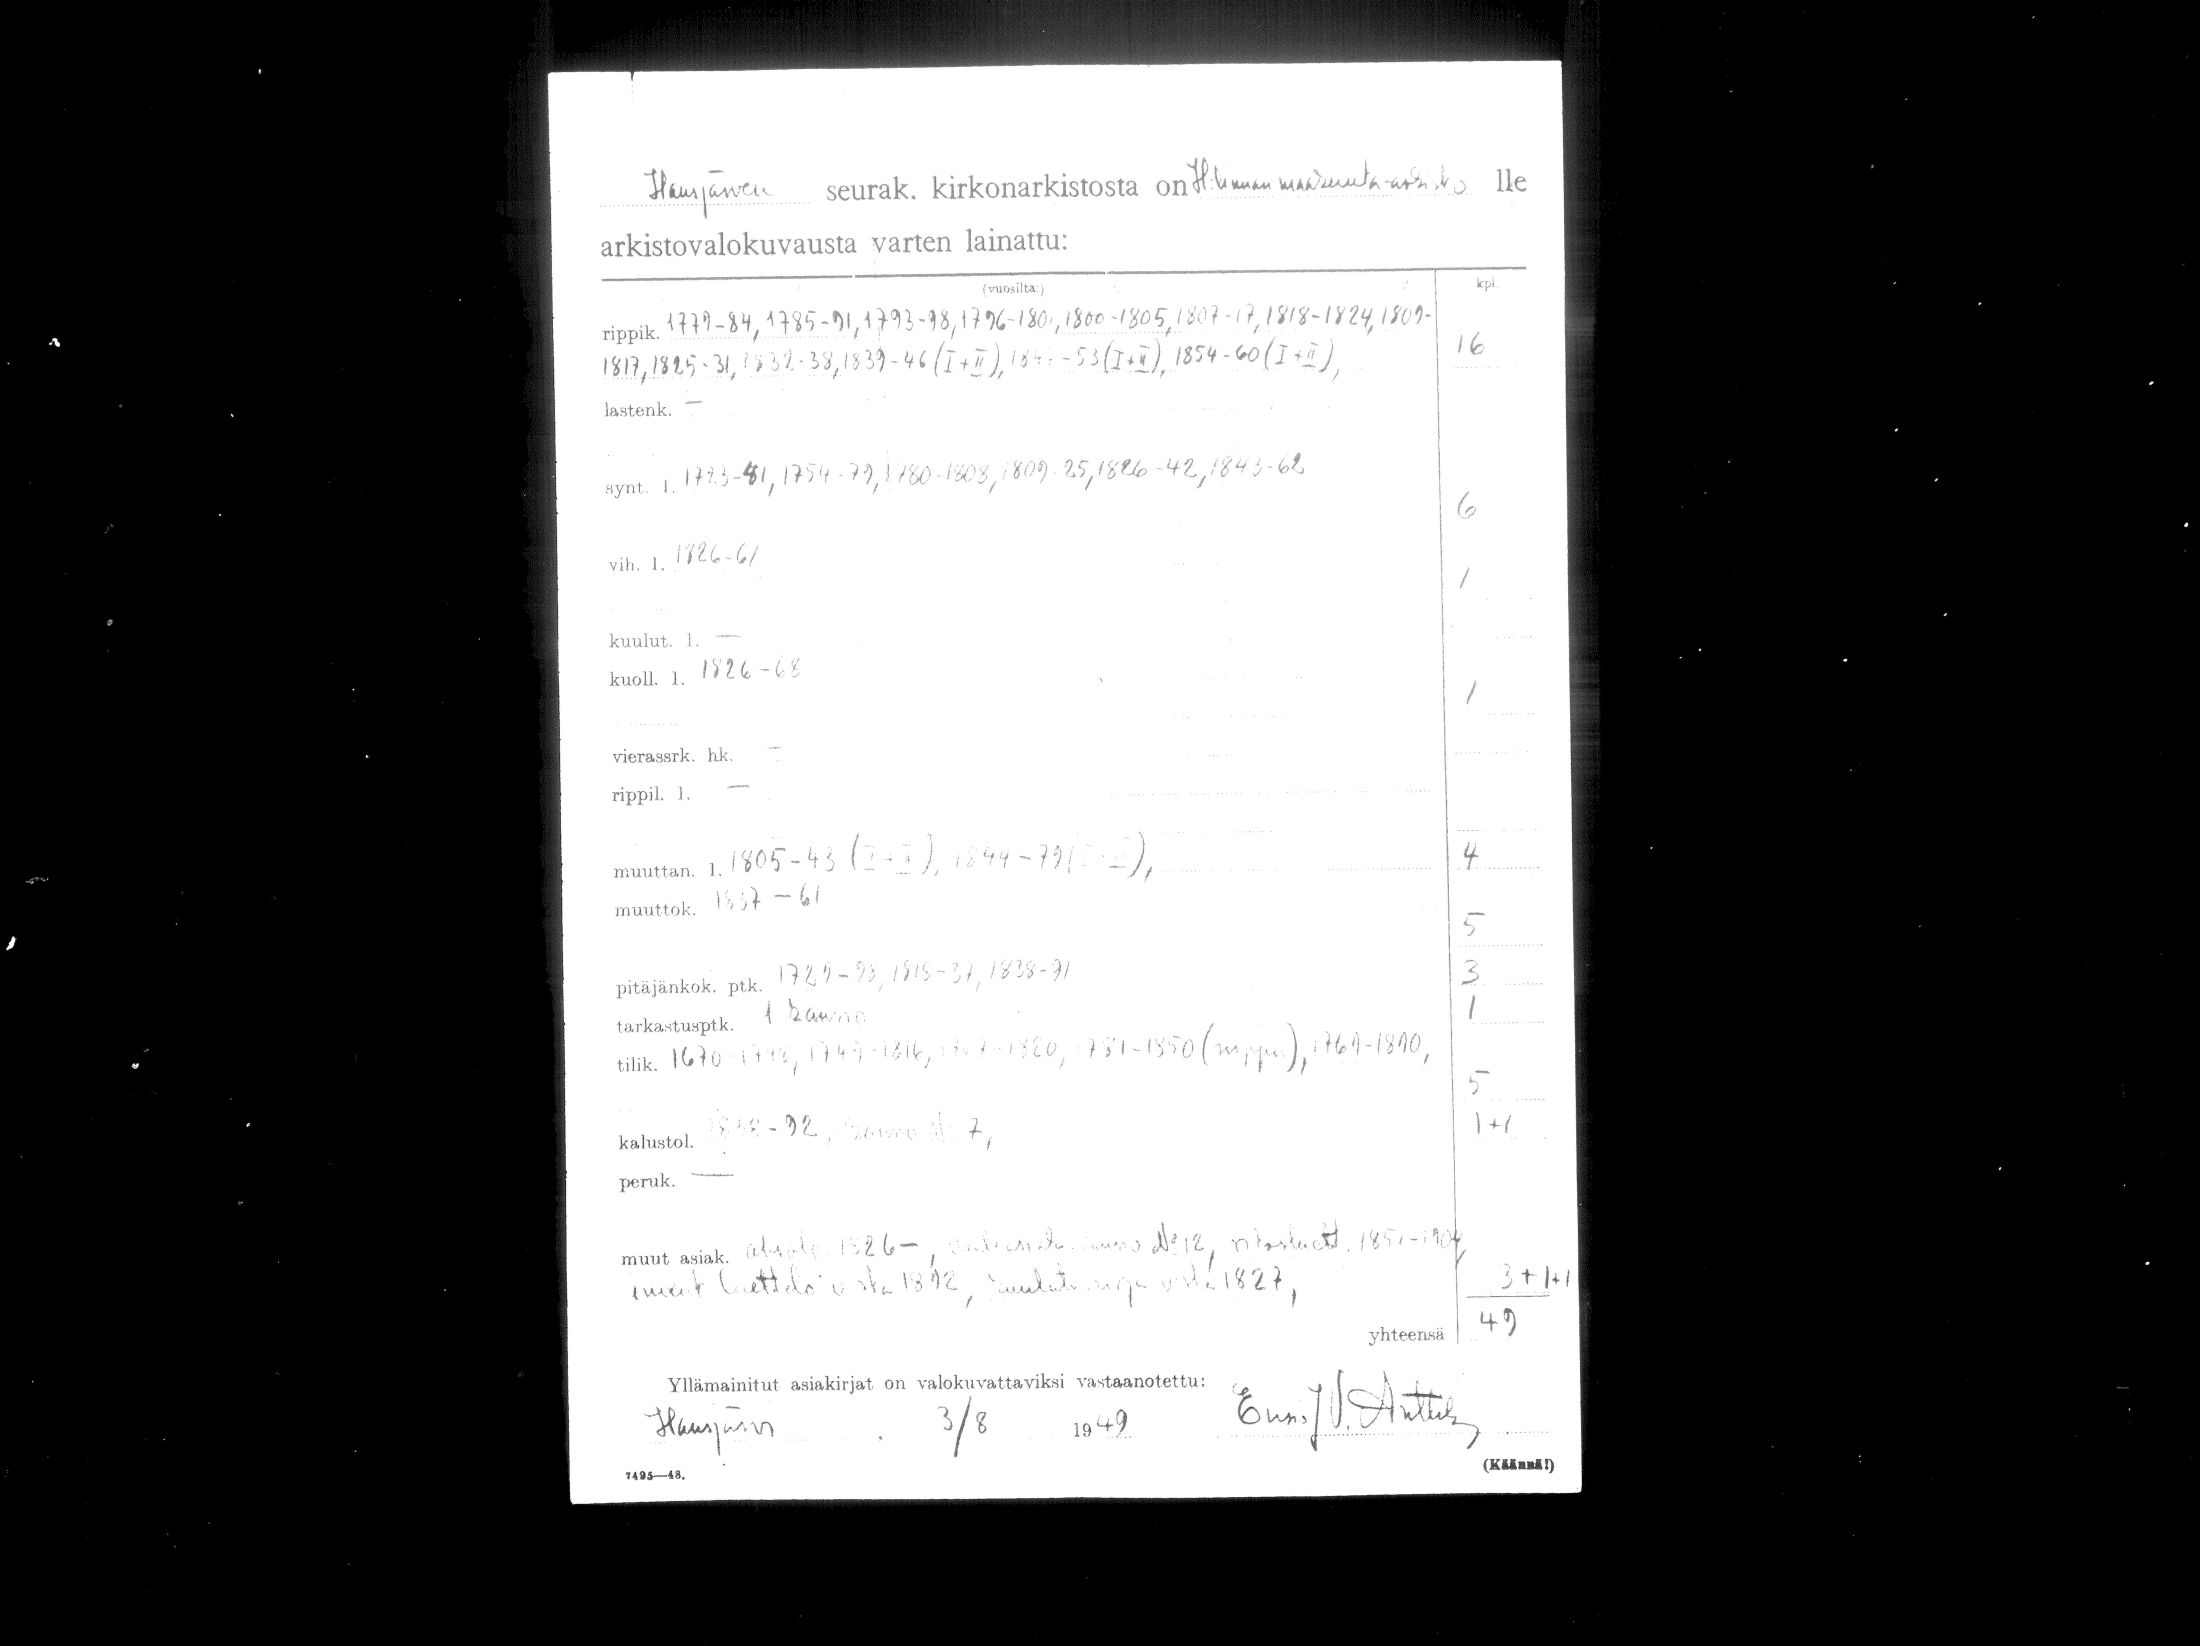 Hausjärven seurak. kirkonarkistosta on H:linnan maakunta-arkisto lle
arkistovalokuvausta varten lainattu:
(vuosilta:) kpl.
rippik. 1779-84, 1785-91, 1793-98, 1796-1801, 1800-1805, 1807-17, 1818-1824, 1809-
1817, 1825-31, 1832-38, 1839-46 (I+II), 1847-53 (I+II), 1854-60 (I+II), 16
lastenk. —
synt. l. 1754-79, 1780-1808, 1809-25, 1826-42, 1843-62
6
vih. l. 1826-61
1
kuulut. l. —
kuoll. l. 1826-68
1
vierassrk. hk. —
rippil. l. —
muuttan. l. 1805-43 (I+II), 1844-79 (I+II), 4
muuttok. 1837-61
5
pitäjänkok. ptk. 1815-37, 1838-91 3
tarkastusptk. 1 1
tilik. 1670- 1769-1890,
5
kalustol. -92, 7, 1+1
peruk. —
muut asiak. 1826-, No 12,
1892, 1827, 3+1+1
yhteensä 49
Yllämainitut asiakirjat on valokuvattaviksi vastaanotettu:
Hausjärvi 3/8 1949 V. Anttila
7495—48. (Käännä!)